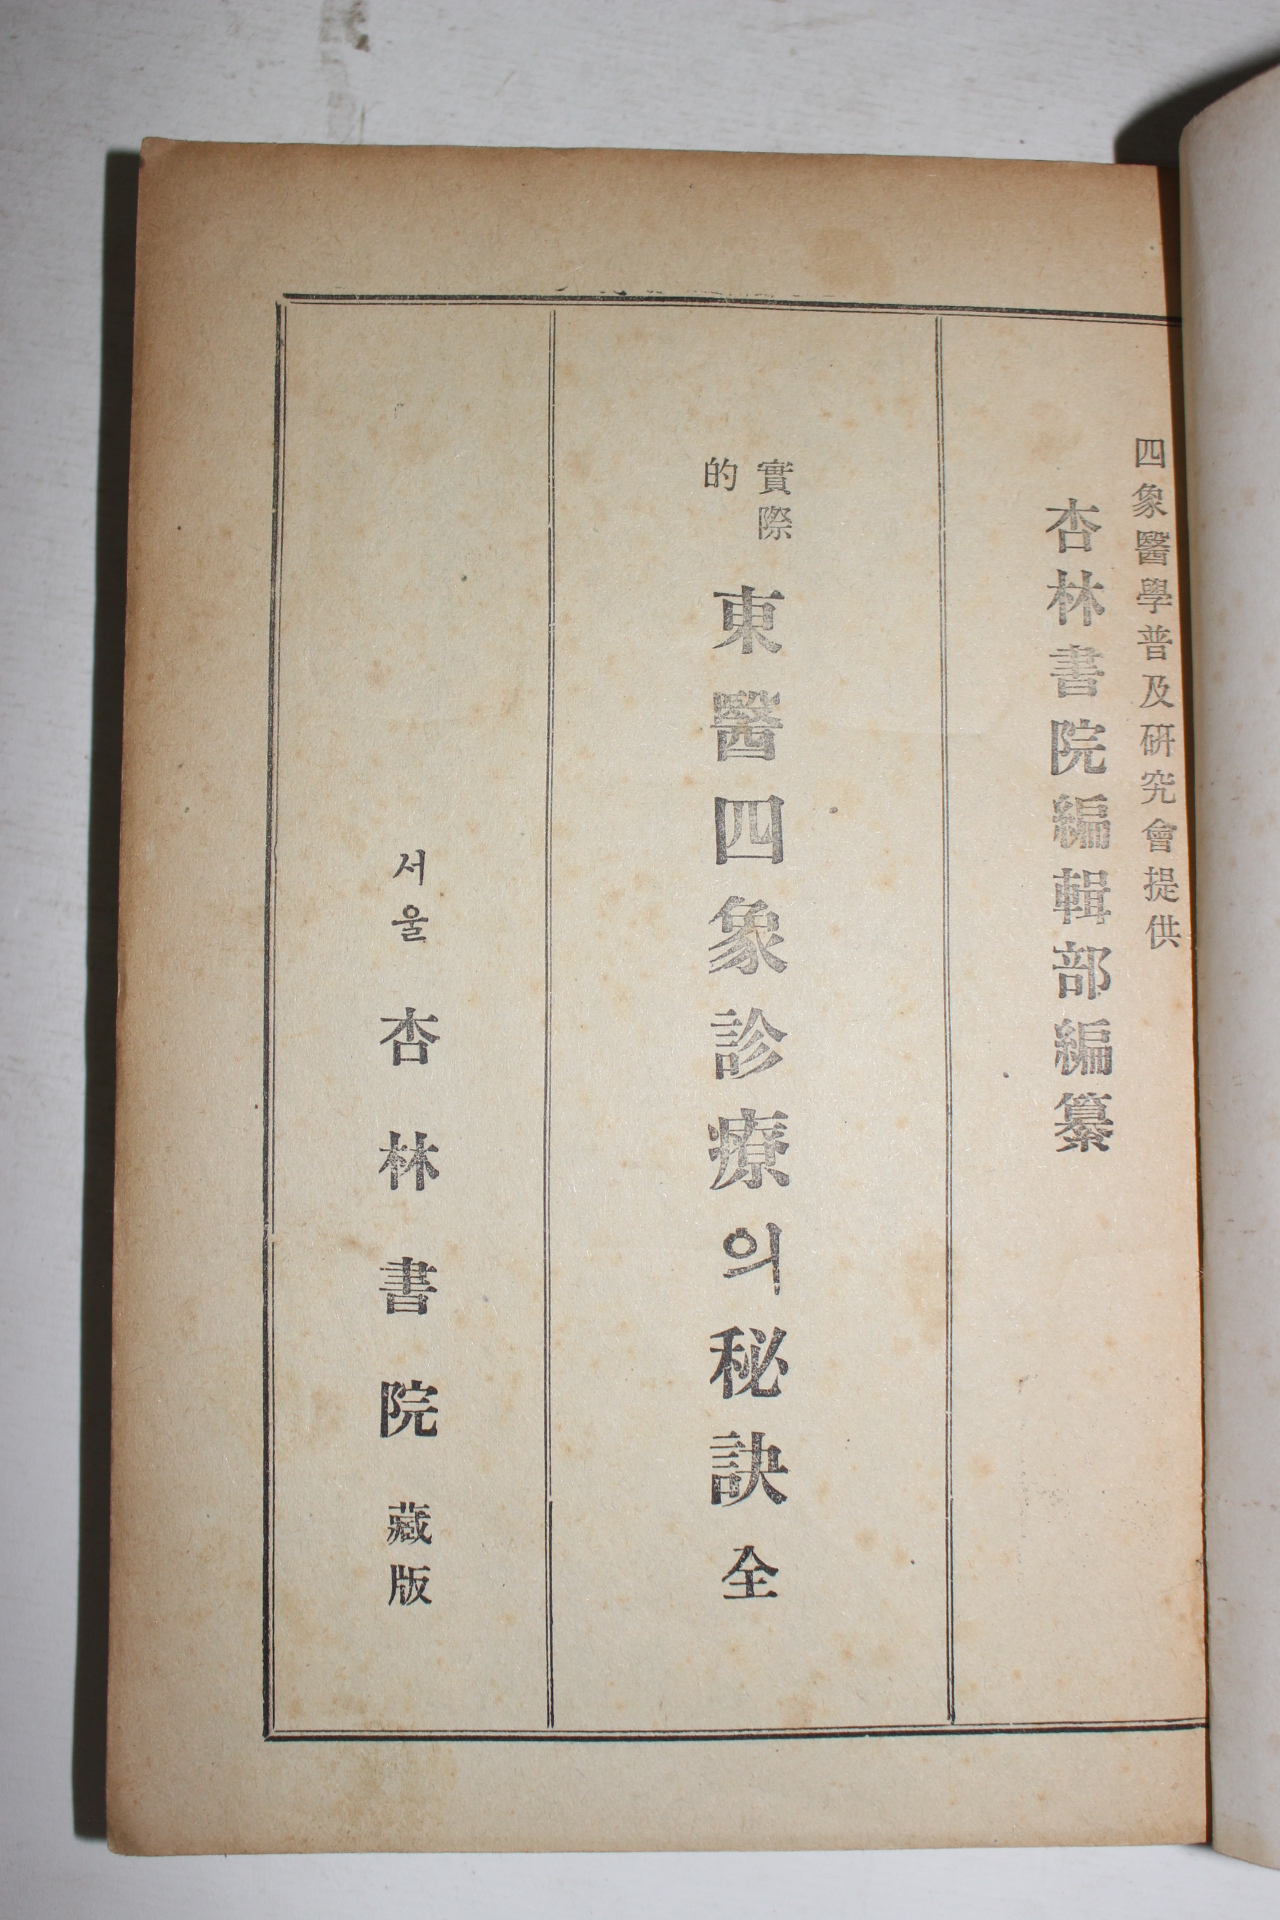 四象醫學普及硏究會提供
杏林書院編輯部編纂
實際的 東醫四象診療의秘訣 全
서울 杏林書院 藏版